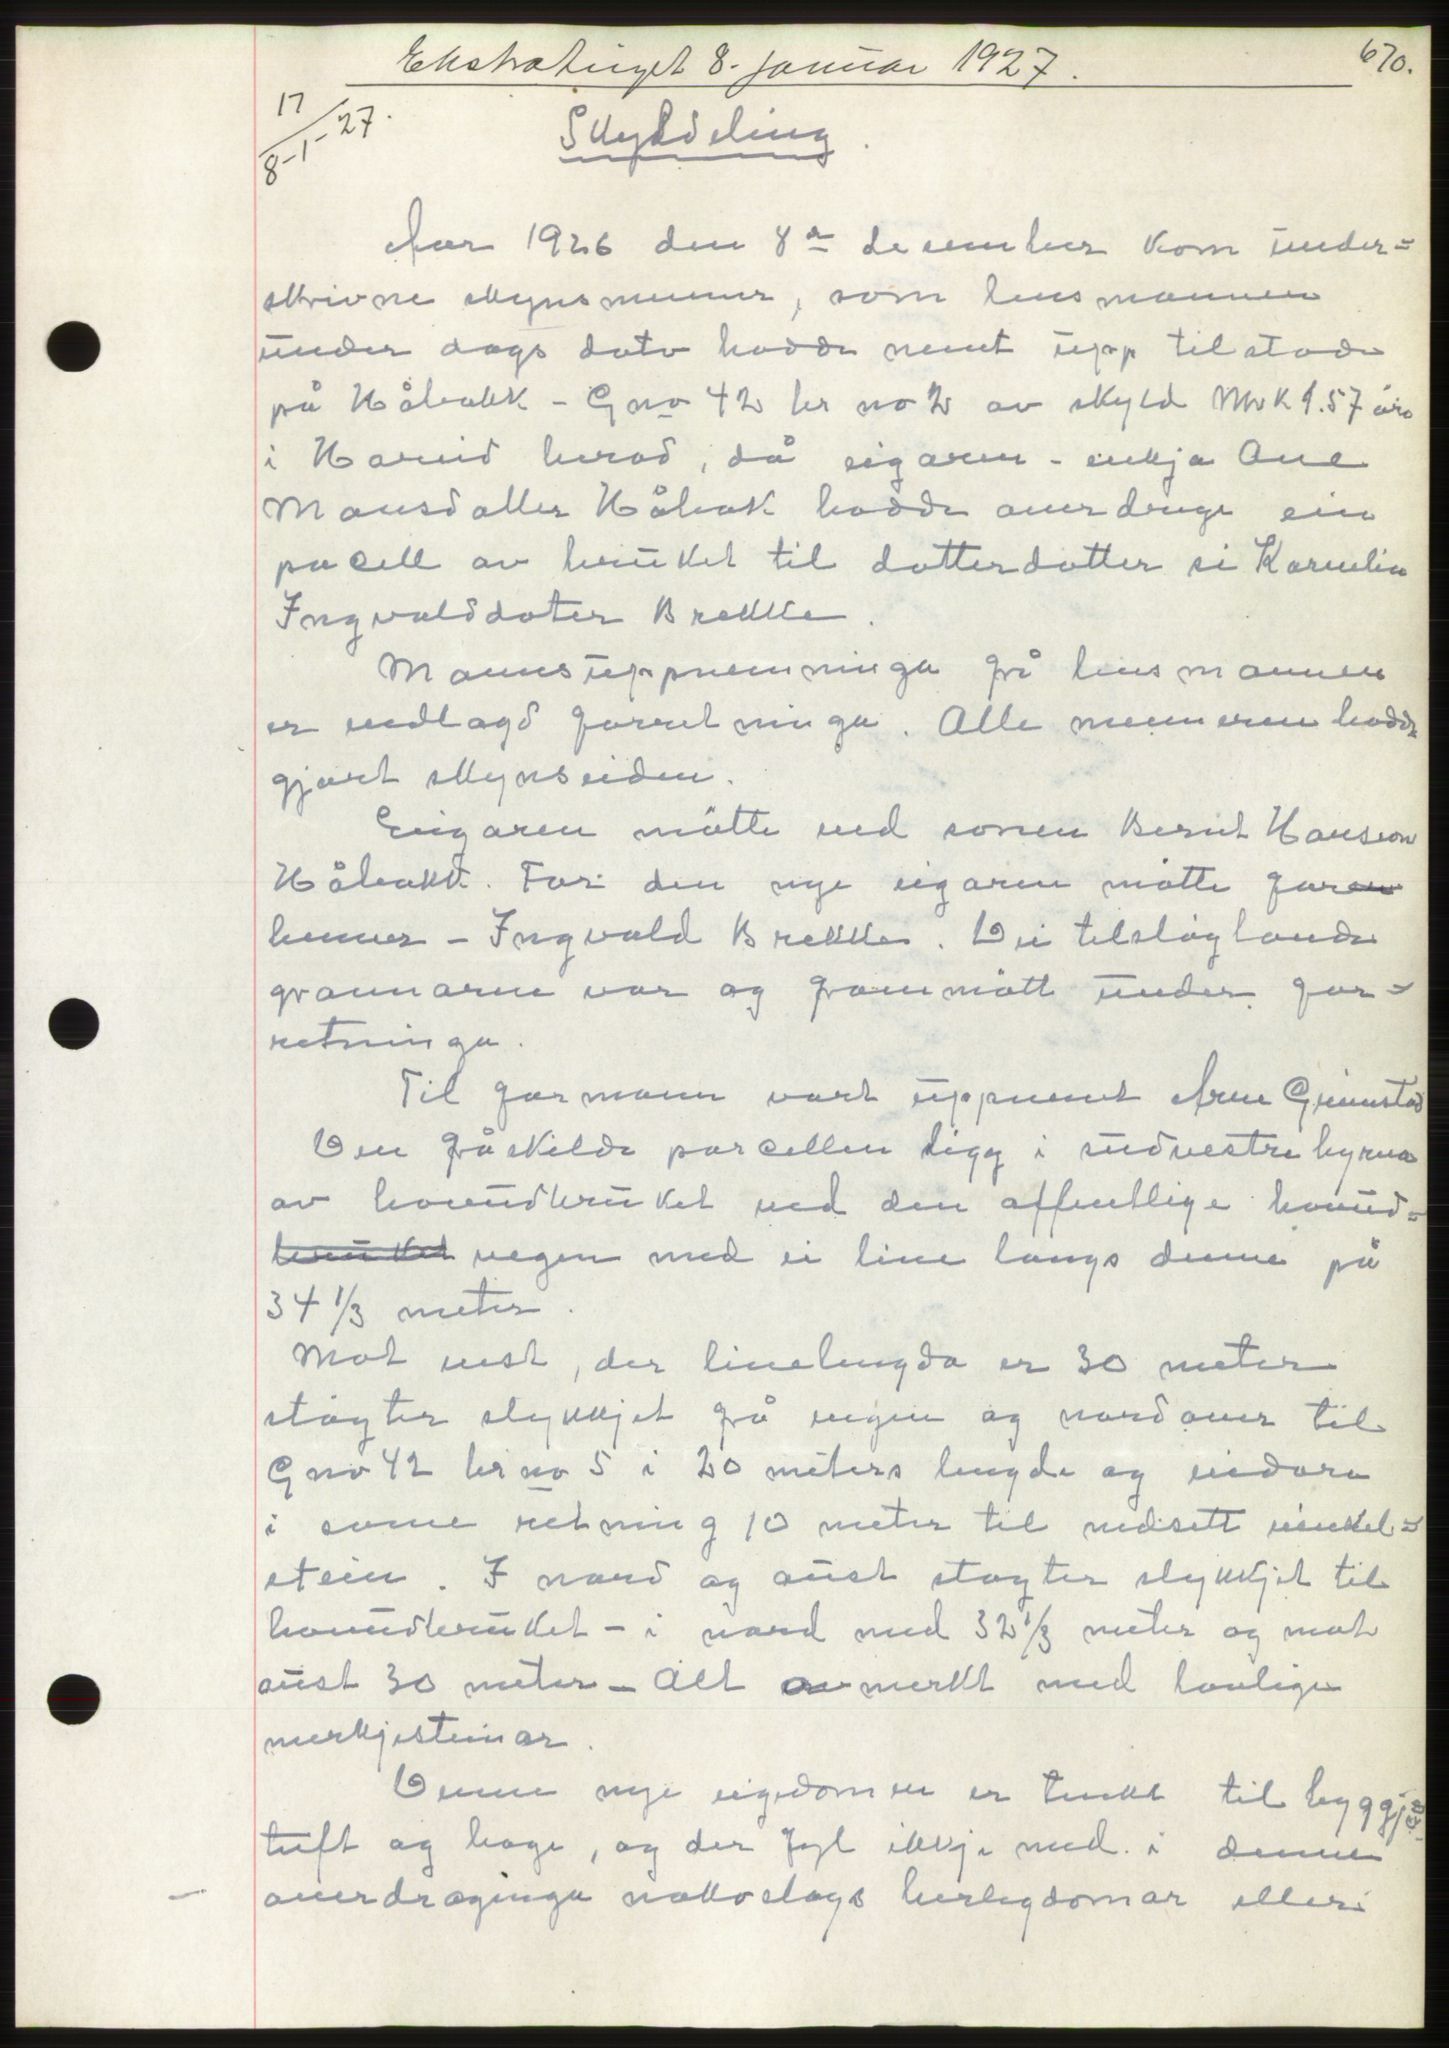 Ekstratinget 8. januar 1927.
670.
17
8-1-27.
Skylddeling.
Aar 1926 den 8de desember kom under=
skrivne skynsmenner, som lensmannen
under dags dato hadde nemt upp tilstade
på Håbakk - G no 42 br no 2 av skyld Mrk 1.57 øre
i Hareid herad, då eigaren - enkja Ane
Mansdotter Håbakk hadde overdrege ein
pacell av bruket til dotterdotter si Kornelia
Ingvalddoter Brekke.
Mannsuppnemninga frå lensmannen
er vedlagd forretninga. Alle mennerne hadde
gjort skynseiden.
Eigaren møtte ved sonen Bernt Hansson
Håbakk. For den nye eigaren møtte faren
hennes - Ingvald Brekke. Dei tilstøytande
grannarne var og frammøtt under for=
retninga.
Til formann vart uppnemt Arne Grimstad
Den fråskilde parcellen ligg i sudvestre hyrna
av hovudbruket ved den offentlige hovud=
bruket vegen med ei line langs denne på
34 1/3 meter.
Mot vest, der linelengda er 30 meter
støyter stykkjet frå vegen og nordover til
G no 42 br no 5 i 20 meters lengde og vidare
i same retning 10 meter til nedsett vinkel=
stein. I nord og aust støyter stykkjet til
hovudbruket - i nord med 32 1/3 meter og mot
aust 30 meter - Alt avmerkt med lovlige
merkjesteinar.
Denne nye eigedomen er tenkt til byggje=
tuft og hage, og der fyl ikkje med i denne
overdraginga nokoslags herlegdomar eller